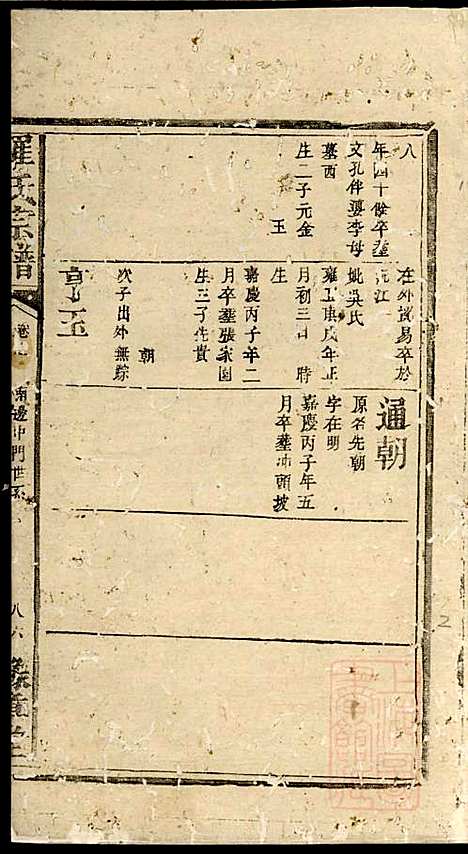 八
年四十餘卒墓
文孔伴婆李母
墓西
生二子元金
玉
在外貿易卒於
沅江
妣吳氏
雍正庚戌年正
月初三日 時
生
嘉慶丙子年二
月卒墓張家園
生三子先貴
朝
次子出外無踪
亨玉
通朝
原名先朝
字在明
嘉慶丙子年五
月卒墓冲頭坡
羅氏宗譜
南邊中門世系
八六
2